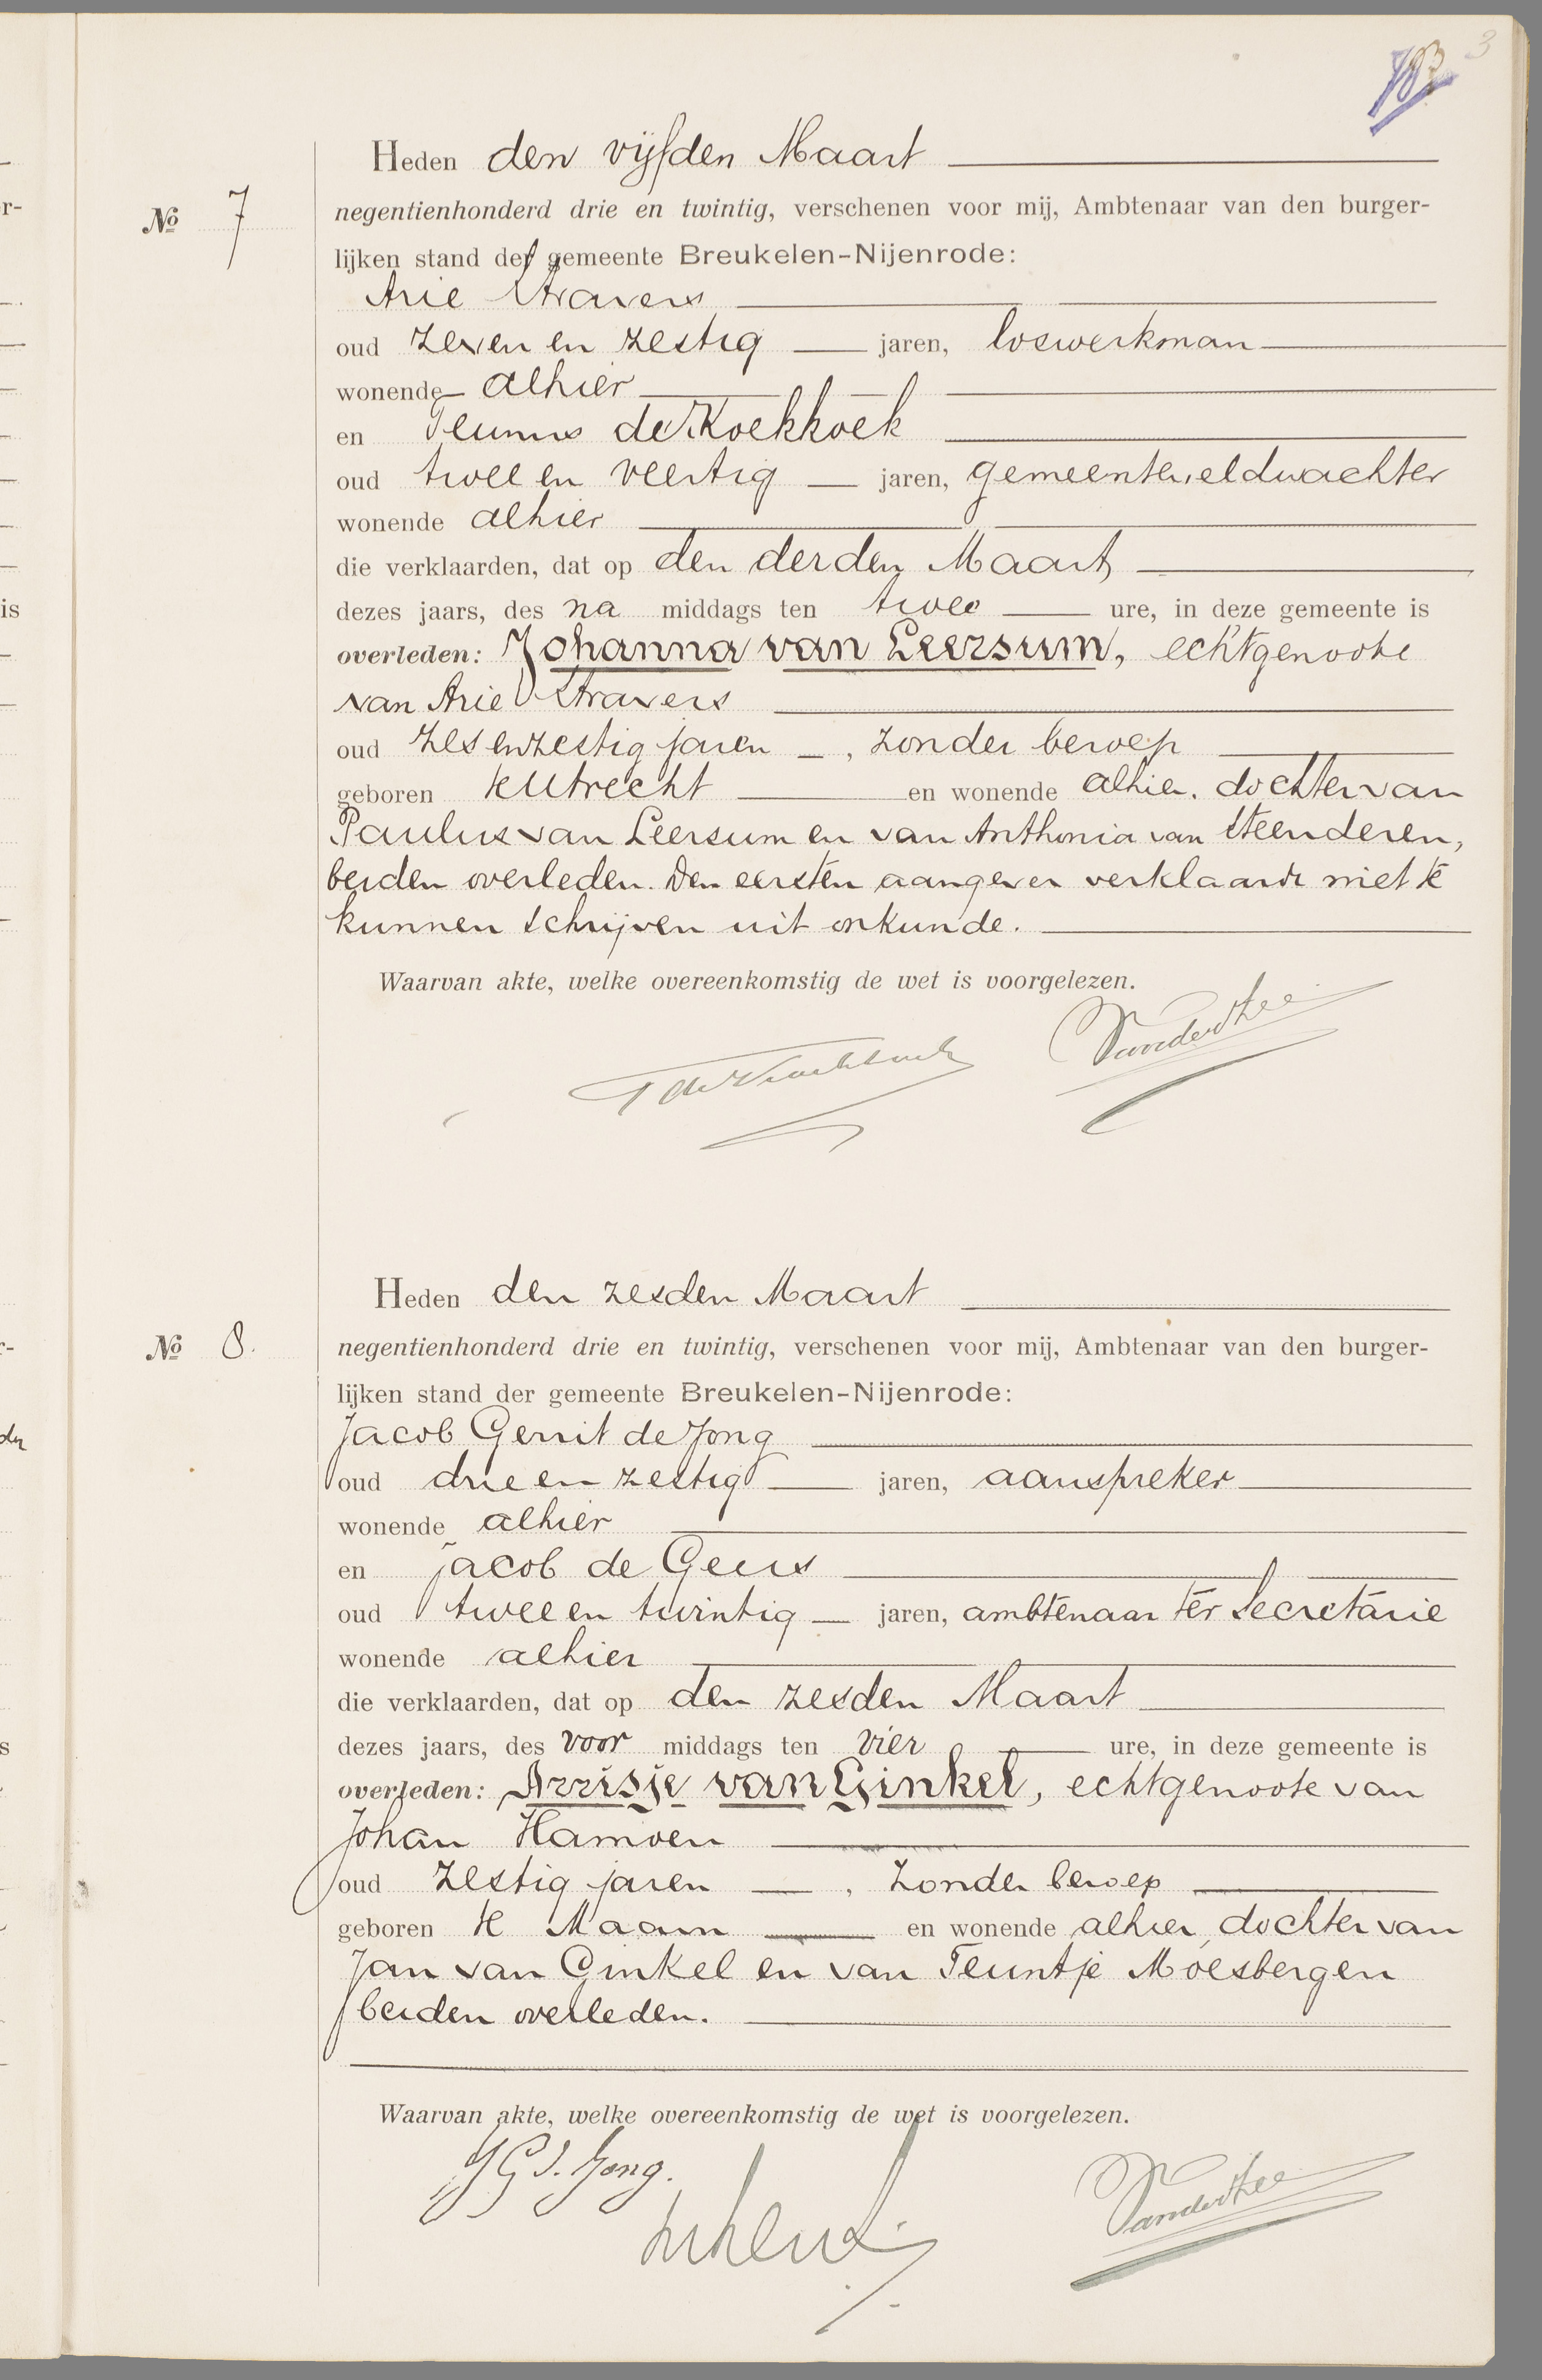 3
Heden den vijfden Maart
No 7
negentienhonderd drie en twintig, verschenen voor mij, Ambtenaar van den burger-
lijken stand der gemeente Breukelen-Nijenrode:
Arie Stravers
oud zeven en zestig jaren, loswerkman
wonende alhier
en Teunis de Koekkoek
oud twee en veertig jaren, gemeenteveldwachter
wonende alhier
die verklaarden, dat op den derden Maart
dezes jaars, des na middags ten twee ure, in deze gemeente is
overleden: Johanna van Leersum, echtgenoote
van Arie Stravers
oud zesenzestig jaren, zonder beroep
geboren te Utrecht en wonende alhier, dochter van
Paulus van Leersum en van Anthonia van Steenderen,
beiden overleden. Den eersten aangever verklaarde niet te
kunnen schrijven uit onkunde.
Waarvan akte, welke overeenkomstig de wet is voorgelezen.
T de Koekkoek
Heden den zesden Maart
No 8.
negentienhonderd drie en twintig, verschenen voor mij, Ambtenaar van den burger-
lijken stand der gemeente Breukelen-Nijenrode:
Jacob Gerrit de Jong
oud drie en zestig jaren, aanspreker
wonende alhier
en Jacob de Geus
oud twee en twintig jaren, ambtenaar ter Secretarie
wonende alhier
die verklaarden, dat op den zesden Maart
dezes jaars, des voor middags ten vier ure, in deze gemeente is
overleden: Arrisje van Ginkel, echtgenoote van
Johan Hamoen
oud zestig jaren, zonder beroep
geboren te Maarn en wonende alhier, dochter van
Jan van Ginkel en van Teuntje Moesbergen
beiden overleden.
Waarvan akte, welke overeenkomstig de wet is voorgelezen.
JG d. Jong.